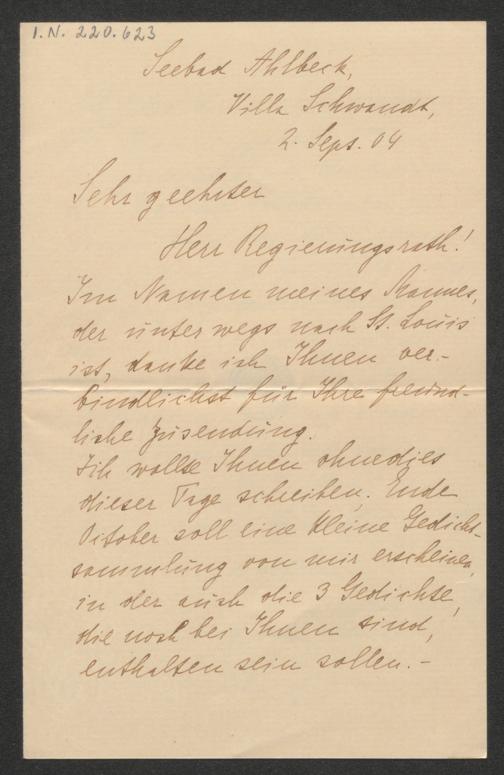 I.N. 220.623
Seebad Ahlbeck,
Villa Schwandt,
2. Sept. 04
Sehr geehrter
Herr Regierungsrath!
Im Namen meines Mannes,
der unterwegs nach St. Louis
ist, danke ich Ihnen ver-
bindlichst für Ihre freund-
liche Zusendung.
Ich wollte Ihnen ohnedies
dieser Tage schreiben. Ende
October soll eine kleine Gedicht-
sammlung von mir erscheinen,
in der auch die 3 Gedichte,
die noch bei Ihnen sind,
enthalten sein sollen. –